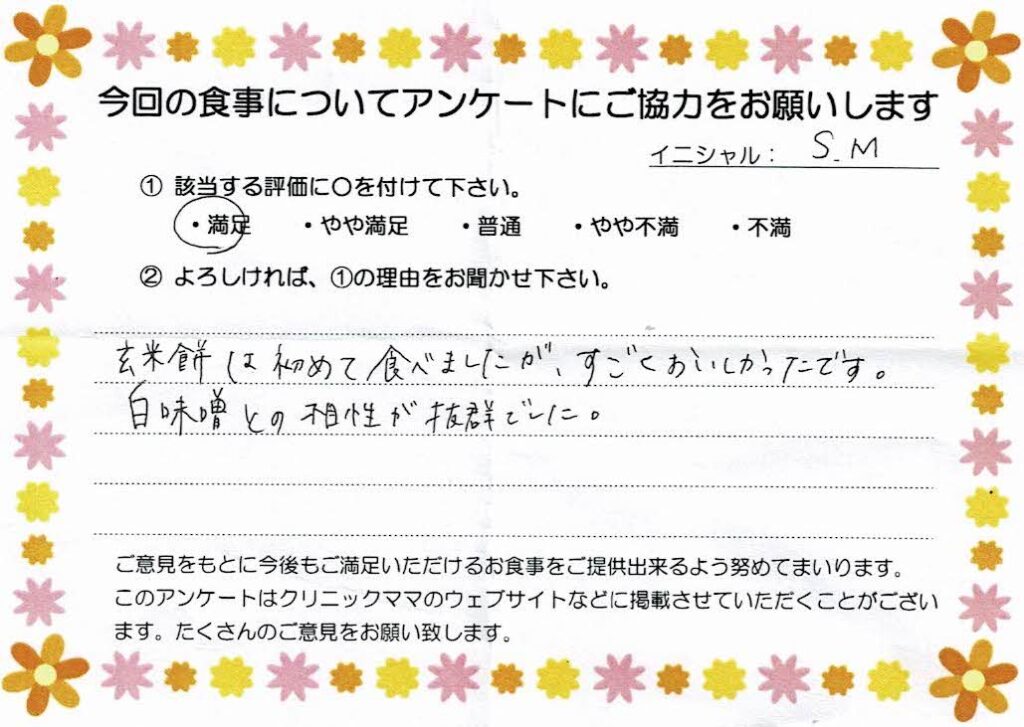 今回の食事についてアンケートにご協力をお願いします
イニシャル： S.M
① 該当する評価に〇を付けて下さい。
・満足　・やや満足　・普通　・やや不満　・不満
② よろしければ、①の理由をお聞かせ下さい。
玄米餅は初めて食べましたが、すごくおいしかったです。
白味噌との相性が抜群でした。
ご意見をもとに今後もご満足いただけるお食事をご提供出来るよう努めてまいります。
このアンケートはクリニックママのウェブサイトなどに掲載させていただくことがござい
ます。たくさんのご意見をお願い致します。